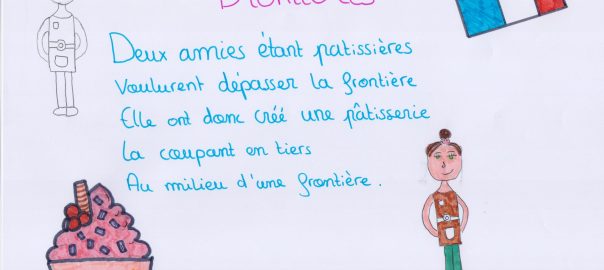 Deux amies étant patissières
Voulurent dépasser la frontière
Elle ont donc créé une pâtisserie
La coupant en tiers
Au milieu d'une frontière.